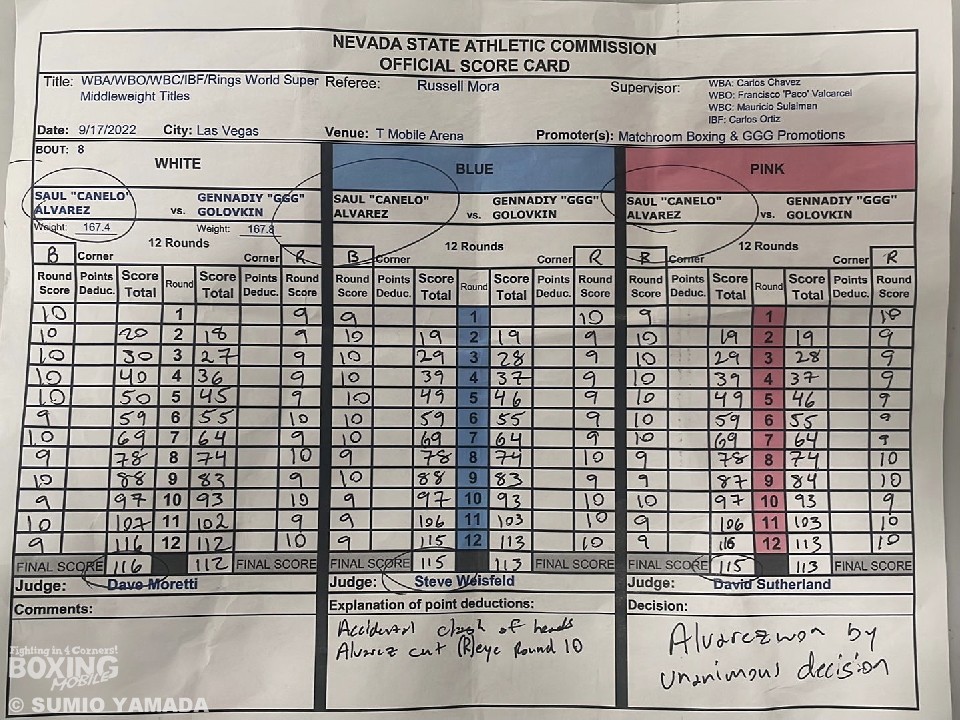 NEVADA STATE ATHLETIC COMMISSION
OFFICIAL SCORE CARD
Title: WBA/WBO/WBC/IBF/Rings World Super Middleweight Titles Referee: Russell Mora Supervisor: WBA: Carlos Chavez
WBO: Francisco 'Paco' Valcarcel
WBC: Mauricio Sulaiman
IBF: Carlos Ortiz
Date: 9/17/2022 City: Las Vegas Venue: T Mobile Arena Promoter(s): Matchroom Boxing & GGG Promotions
BOUT: 8
WHITE
SAUL "CANELO" ALVAREZ vs. GENNADIY "GGG" GOLOVKIN
Weight: 167.4 Weight: 167.8
12 Rounds
B Corner Corner R
Round Score Points Deduc. Score Total Round Score Total Points Deduc. Round Score
10 1 9
10 20 2 18 9
10 30 3 27 9
10 40 4 36 9
10 50 5 45 9
9 59 6 55 10
10 69 7 64 9
9 78 8 74 10
10 88 9 83 9
9 97 10 93 10
10 107 11 102 9
9 116 12 112 10
FINAL SCORE 116 112 FINAL SCORE
Judge: Dave Moretti
Comments:
BLUE
SAUL "CANELO" ALVAREZ vs. GENNADIY "GGG" GOLOVKIN
12 Rounds
B Corner Corner R
Round Score Points Deduc. Score Total Round Score Total Points Deduc. Round Score
9 1 10
10 19 2 19 9
10 29 3 28 9
10 39 4 37 9
10 49 5 46 9
10 59 6 55 9
10 69 7 64 9
9 78 8 74 10
10 88 9 83 9
9 97 10 93 10
9 106 11 103 10
9 115 12 113 10
FINAL SCORE 115 113 FINAL SCORE
Judge: Steve Weisfeld
Explanation of point deductions:
Accidental clash of heads
Alvarez cut (R) eye Round 10
PINK
SAUL "CANELO" ALVAREZ vs. GENNADIY "GGG" GOLOVKIN
12 Rounds
Corner Corner R
Round Score Points Deduc. Score Total Round Score Total Points Deduc. Round Score
9 1 10
10 19 2 19 9
10 29 3 28 9
10 39 4 37 9
10 49 5 46 9
10 59 6 55 9
10 69 7 64 9
9 78 8 74 10
9 87 9 84 10
10 97 10 93 9
9 106 11 103 10
9 12 113 10
FINAL SCORE 115 113 FINAL SCORE
Judge: David Sutherland
Decision:
Alvarez won by
unanimous decision
Fighting in 4 Corners!
BOXING
MOBILE
© SUMIO YAMADA